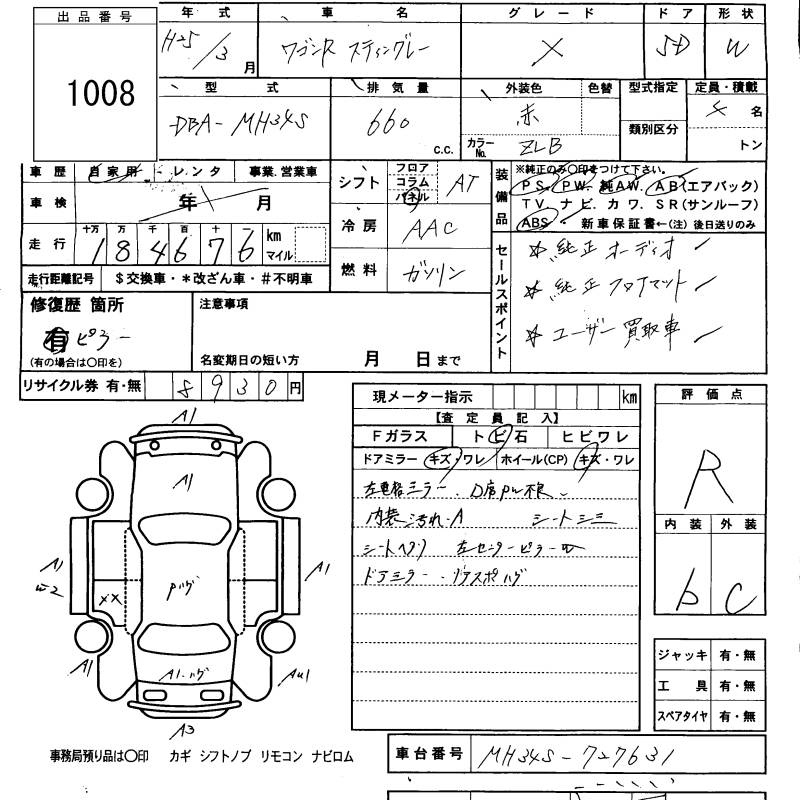 出品番号
1008
年式 車名 グレード ドア 形状
H25/3月 ワゴンR スティングレー X 5D W
型式 排気量 外装色 色替 型式指定 定員・積載
DBA-MH34S 660 c.c. 赤 類別区分 4名
カラーNo. ZLB トン
車歴 自家用・レンタ 事業.営業車
シフト フロア コラム パネル AT
車検 年 月
冷房 AAC
走行 十万 万 千 百 十 km マイル
184676
燃料 ガソリン
走行距離記号 $交換車・*改ざん車・#不明車
装備品
※純正のみ〇印をつけて下さい。
PS. PW. 純AW. AB(エアバック)
TV. ナビ. カワ. SR(サンルーフ)
ABS. 新車保証書←(注)後日送りのみ
セールスポイント
☆純正オーディオ
☆純正フロアマット
☆ユーザー買取車
修復歴 箇所
有 ピラー
(有の場合は〇印を)
注意事項
名変期日の短い方 月 日まで
リサイクル券 有・無 8930円
現メーター指示 km
【査定員記入】
Fガラス トビ石 ヒビワレ
ドアミラー キズ・ワレ ホイール(CP) キズ・ワレ
左電格ミラー. D席PW不良
内装汚れ・A シートシミ
シートヘタリ 左センターピラーW
ドアミラー・リアスポハゲ
評価点
R
内装 外装
b C
ジャッキ 有・無
工具 有・無
スペアタイヤ 有・無
A1
A1
A1
W2
XX
Pハゲ
A1
A1
A1.ハゲ
AU1
A3
事務局預り品は〇印 カギ シフトノブ リモコン ナビロム
車台番号 MH34S-727631